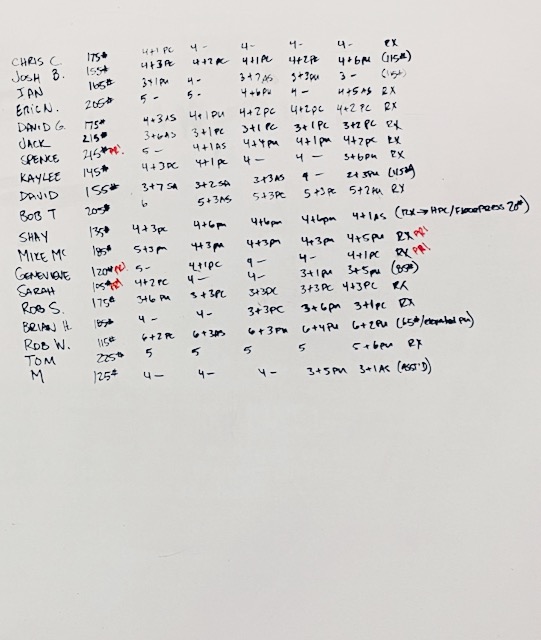 CHRIS C. 175# 4+1PC 4- 4- 4- 4- RX
JOSH B. 155# 4+3PC 4+2PC 4+1PC 4+2PC 4+6PU (115#)
IAN 165# 3+1PU 4- 3+7AS 3+3PU 3-
ERIC N. 205# 5- 5- 4+6PU 4- 4+5AS RX
DAVID G. 175# 4+3AS 4+1PU 4+2PC 4+2PC 4+2PC RX
JACK 215# 3+6AS 3+1PC 3+1PC 3+1PC 3+2PC RX
SPENCE 215# PR! 5- 4+1AS 4+4PU 4+1PU 4+2PC RX
KAYLEE 145# 4+3PC 4+1PC 4- 4- 3+6PU RX
DAVID 155# 3+7SA 3+2SA 3+3AS 4- 2+3PU
BOB T 205# 6 5+3AS 5+3PC 5+3PC 5+2PU RX
SHAY 135# 4+3PC 4+6PU 4+6PU 4+6PU 4+1AS (RX→HPC/FLOOR PRESS 20#)
MIKE MC 185# 5+3PU 4+3PU 4+3PU 4+3PU 4+5PU RX PR!
GENEVIEVE 120# PR! 5- 4+1PC 4- 4- 4+1PC RX PR!
SARAH 105# PR! 4+2PC 4- 4- 3+1PU 3+5PU (85#)
ROB S. 175# 3+6PU 3+3PC 3+3PC 3+3PC 4+3PC RX
BRIAN H. 185# 4- 4- 3+3PC 3+6PU 3+1PC RX
ROB W. 115# 6+2PC 6+3AS 6+3PU 6+4PU 6+2PU (65#/elevated PU)
TOM 225# 5 5 5 5 5+6PU RX
M 125# 4- 4- 4- 3+5PU 3+1AS (ASST'D)